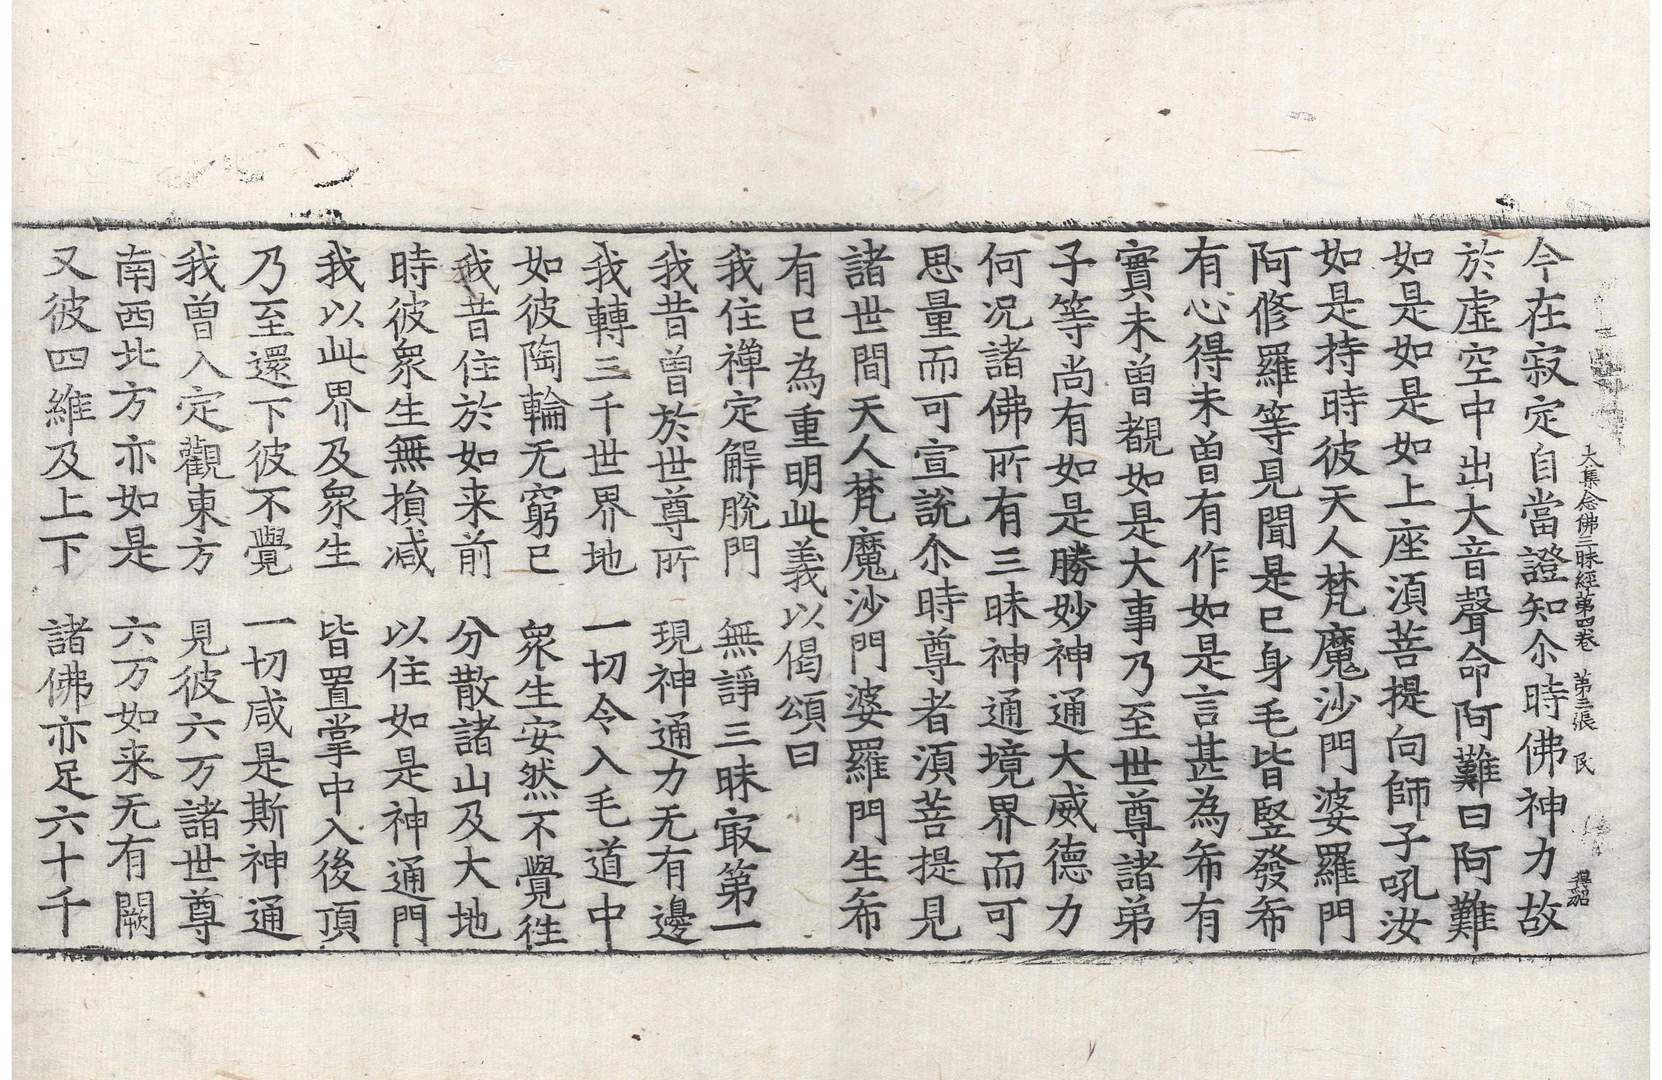 大集念佛三昧經第四卷　第三張　民
今在寂定自當證知尒時佛神力故
於虛空中出大音聲命阿難曰阿難
如是如是如上座湏菩提向師子吼汝
如是持時彼天人梵魔沙門婆羅門
阿修羅等見聞是已身毛皆竪發希
有心得未曾有作如是言甚為希有
實未曾覩如是大事乃至世尊諸弟
子等尚有如是勝妙神通大威德力
何况諸佛所有三昧神通境界而可
思量而可宣說尒時尊者湏菩提見
諸世間天人梵魔沙門婆羅門生希
有已為重明此義以偈頌曰
我住禪定解脫門　無諍三昧㝡第一
我昔曾於世尊所　現神通力无有邊
我轉三千世界地　一切令入毛道中
如彼陶輪无窮已　衆生安然不覺徃
我昔住於如来前　分散諸山及大地
時彼衆生無損减　以住如是神通門
我以此界及衆生　皆置掌中入後頂
乃至還下彼不覺　一切咸是斯神通
我曾入定觀東方　見彼六万諸世尊
南西北方亦如是　六万如来无有闕
又彼四維及上下　諸佛亦足六十千